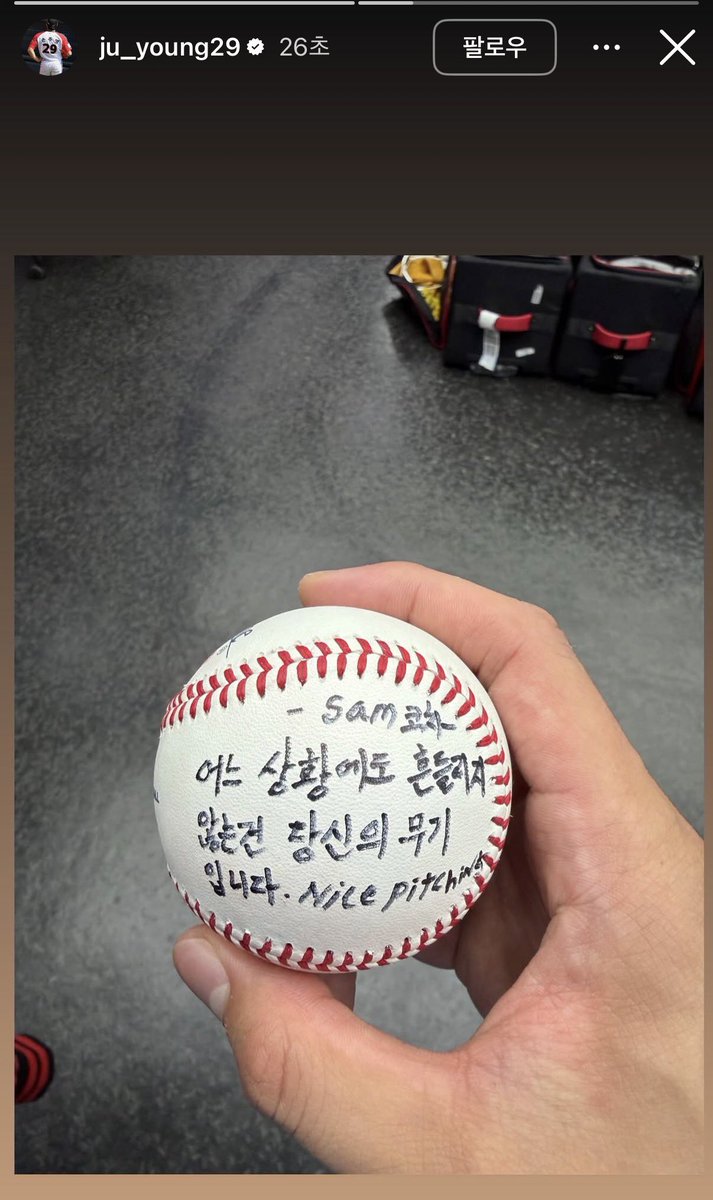 ju_young29 26초 팔로우
29
- Sam 코치
어느 상황에도 흔들리지
않는건 당신의 무기
입니다. Nice pitching